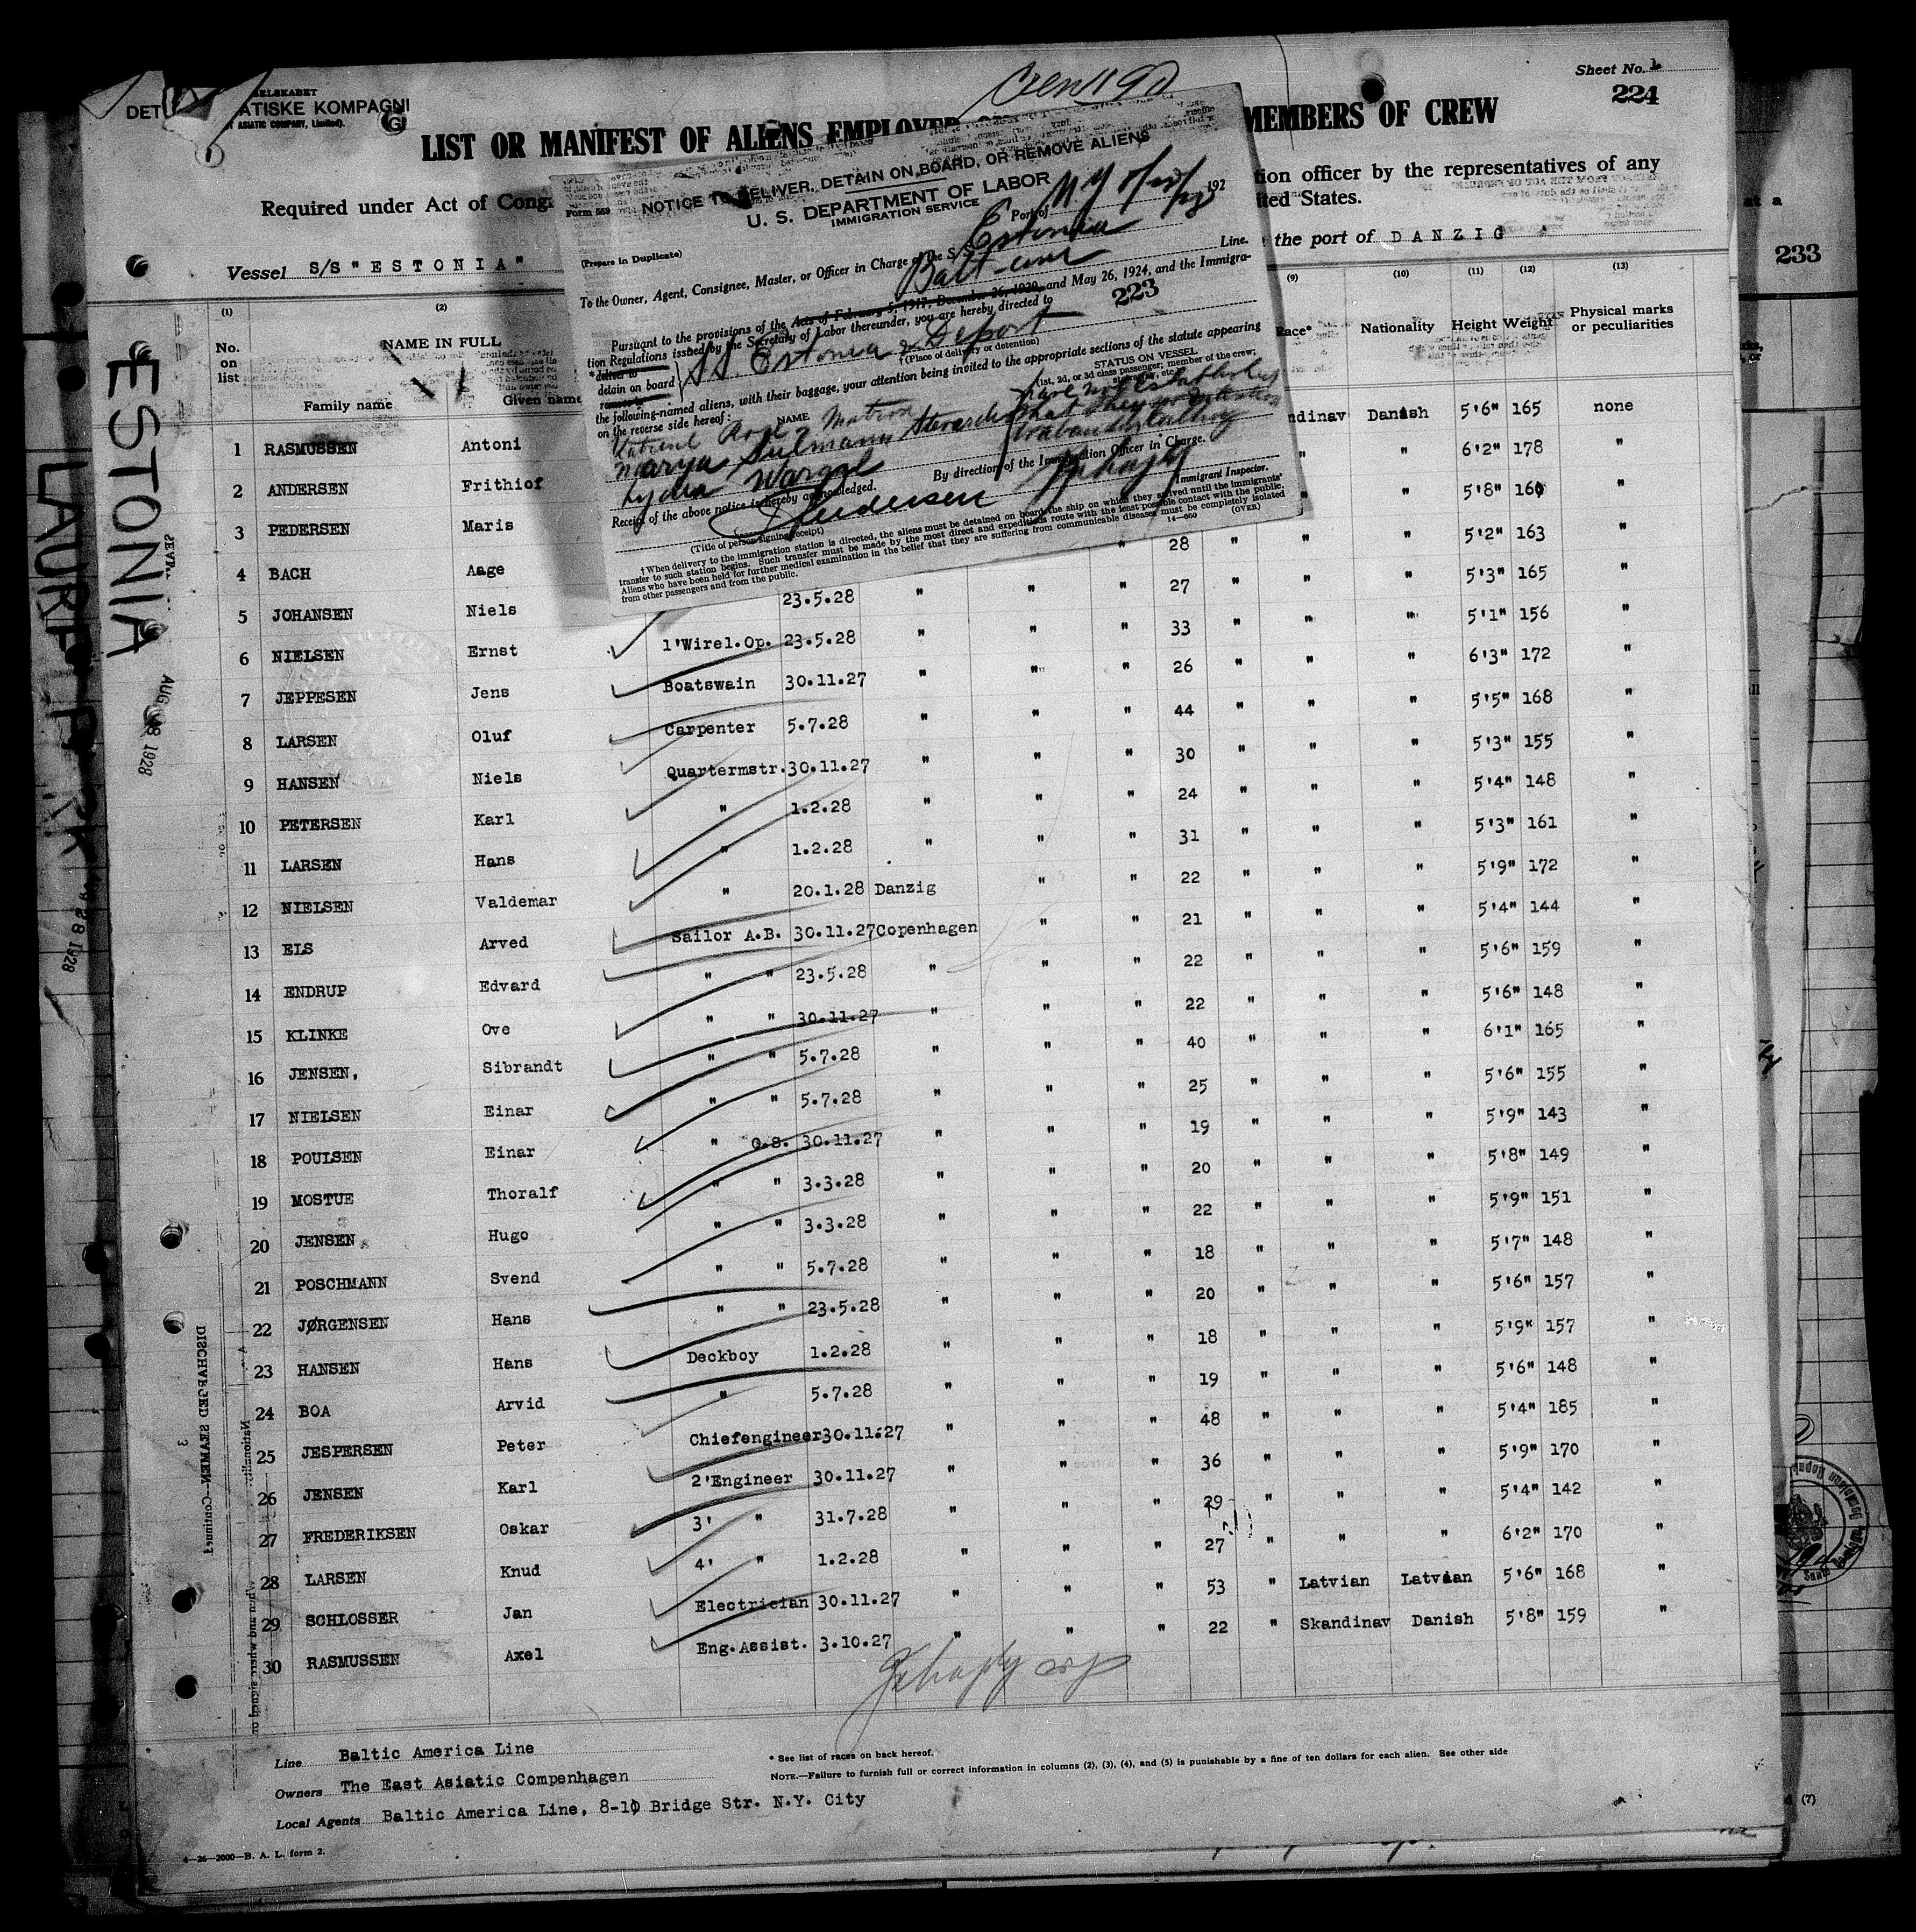 Sheet No. 1
224
DET ATISKE KOMPAGNI
ASIATIC COMPANY, Limited).
LIST OR MANIFEST OF ALIENS EMPLOYED MEMBERS OF CREW
Required under Act of Cong tion officer by the representatives of any
ited States.
Vessel S/S "ESTONIA" the port of DANZIG
Form 569
NOTICE TO DELIVER, DETAIN ON BOARD, OR REMOVE ALIENS
U. S. DEPARTMENT OF LABOR
IMMIGRATION SERVICE
(Prepare in Duplicate)
Port of N Y 192
To the Owner, Agent, Consignee, Master, or Officer in Charge of the S. S. Estonia
Line.
Pursuant to the provisions of the Acts of February 5, 1917, December 26, 1920, and May 26, 1924, and the Immigra-
tion Regulations issued by the Secretary of Labor thereunder, you are hereby directed to 223
*deliver to
detain on board SS. Estonia & Deport
remove to
†(Place of delivery or detention)
the following-named aliens, with their baggage, your attention being invited to the appropriate sections of the statute appearing
on the reverse side hereof:
NAME
STATUS ON VESSEL
(1st, 2d, or 3d class passenger; member of the crew; stowaway, etc.)
By direction of the Immigration Officer in Charge.
Receipt of the above notice is hereby acknowledged.
Immigrant Inspector.
(Title of person signing receipt)
†When delivery to the immigration station is directed, the aliens must be detained on board the ship on which they arrived until the immigrants'
transfer to such station begins. Such transfer must be made by the most direct and expeditious route with the least possible contact with the public.
Aliens who have been held for further medical examination in the belief that they are suffering from communicable diseases must be completely isolated
from other passengers and from the public.
14—660 (OVER)
(1) (2) (9) (10) (11) (12) (13)
No. on list NAME IN FULL Race* Nationality Height Weight Physical marks or peculiarities
Family name Given name
1 RASMUSSEN Antoni ndinav Danish 5'6" 165 none
2 ANDERSEN Frithiof " " 6'2" 178 "
3 PEDERSEN Maris " " 5'8" 160 "
4 BACH Aage " 28 " " " 5'2" 163 "
5 JOHANSEN Niels 23.5.28 " " " 27 " " " 5'3" 165 "
6 NIELSEN Ernst 1'Wirel.Op. 23.5.28 " " " 33 " " " 5'1" 156 "
7 JEPPESEN Jens Boatswain 30.11.27 " " " 26 " " " 6'3" 172 "
8 LARSEN Oluf Carpenter 5.7.28 " " " 44 " " " 5'5" 168 "
9 HANSEN Niels Quartermstr. 30.11.27 " " " 30 " " " 5'3" 155 "
10 PETERSEN Karl " 1.2.28 " " " 24 " " " 5'4" 148 "
11 LARSEN Hans " 1.2.28 " " " 31 " " " 5'3" 161 "
12 NIELSEN Valdemar " 20.1.28 Danzig " " 22 " " " 5'9" 172 "
13 ELS Arved Sailor A.B. 30.11.27 Copenhagen " " 21 " " " 5'4" 144 "
14 ENDRUP Edvard " " 23.5.28 " " " 22 " " " 5'6" 159 "
15 KLINKE Ove " " 30.11.27 " " " 22 " " " 5'6" 148 "
16 JENSEN, Sibrandt " " 5.7.28 " " " 40 " " " 6'1" 165 "
17 NIELSEN Einar " " 5.7.28 " " " 25 " " " 5'6" 155 "
18 POULSEN Einar " O.S. 30.11.27 " " " 19 " " " 5'9" 143 "
19 MOSTUE Thoralf " " 3.3.28 " " " 20 " " " 5'8" 149 "
20 JENSEN Hugo " " 3.3.28 " " " 22 " " " 5'9" 151 "
21 POSCHMANN Svend " " 5.7.28 " " " 18 " " " 5'7" 148 "
22 JØRGENSEN Hans " " 23.5.28 " " " 20 " " " 5'6" 157 "
23 HANSEN Hans Deckboy 1.2.28 " " " 18 " " " 5'9" 157 "
24 BOA Arvid " 5.7.28 " " " 19 " " " 5'6" 148 "
25 JESPERSEN Peter Chiefengineer 30.11.27 " " " 48 " " " 5'4" 185 "
26 JENSEN Karl 2'Engineer 30.11.27 " " " 36 " " " 5'9" 170 "
27 FREDERIKSEN Oskar 3' " 31.7.28 " " " 29 " " " 5'4" 142 "
28 LARSEN Knud 4' " 1.2.28 " " " 27 " " " 6'2" 170 "
29 SCHLOSSER Jan Electrician 30.11.27 " " " 53 " Latvian Latvian 5'6" 168 "
30 RASMUSSEN Axel Eng.Assist. 3.10.27 " " " 22 " Skandinav Danish 5'8" 159 "
Line Baltic America Line
Owners The East Asiatic Compenhagen
Local Agents Baltic America Line, 8-10 Bridge Str. N.Y. City
* See list of races on back hereof.
NOTE.—Failure to furnish full or correct information in columns (2), (3), (4), and (5) is punishable by a fine of ten dollars for each alien. See other side
4—26—2000—B. A. L. form 2.
ESTONIA
AUG 28 1928
DISCHARGED SEAMEN—Continued
3
233
(7)